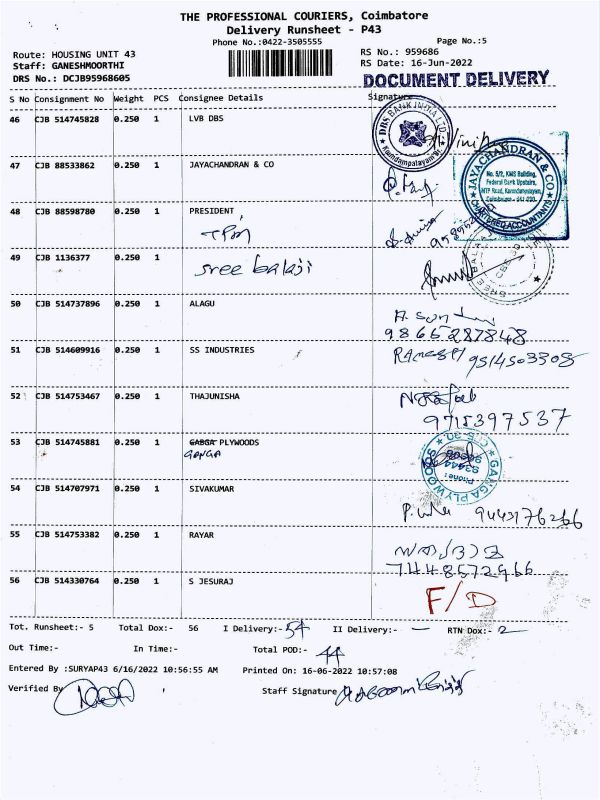 THE PROFESSIONAL COURIERS, Coimbatore
Delivery Runsheet - P43
Phone No.:0422-3505555
Page No.:5
Route: HOUSING UNIT 43
RS No.: 959686
Staff: GANESHMOORTHI
RS Date: 16-Jun-2022
DRS No.: DCJB95968605
DOCUMENT DELIVERY
S No Consignment No Weight PCS Consignee Details Signature
46 CJB 514745828 0.250 1 LVB DBS
DBS BANK INDIA LTD
47 CJB 88533862 0.250 1 JAYACHANDRAN & CO
JAYACHANDRAN & CO
No. 5/2, KMS Building,
Federal Bank Upstairs,
MTP Road, Kavundampalayam,
Coimbatore - 641 030.
CHARTERED ACCOUNTANTS
48 CJB 88598780 0.250 1 PRESIDENT,
49 CJB 1136377 0.250 1
sree balaji
50 CJB 514737896 0.250 1 ALAGU
9865287848
51 CJB 514609916 0.250 1 SS INDUSTRIES
9514503308
52 CJB 514753467 0.250 1 THAJUNISHA
9715397537
53 CJB 514745881 0.250 1 GABGA PLYWOODS
GANGA
GANGA PLYWOODS
Phone:
54 CJB 514707971 0.250 1 SIVAKUMAR
55 CJB 514753382 0.250 1 RAYAR
7448572966
56 CJB 514330764 0.250 1 S JESURAJ
F/D
Tot. Runsheet:- 5 Total Dox:- 56 I Delivery:- 54 II Delivery:- — RTN Dox:- 2
Out Time:- In Time:- Total POD:- 44
Entered By :SURYAP43 6/16/2022 10:56:55 AM Printed On: 16-06-2022 10:57:08
Verified By
Staff Signature